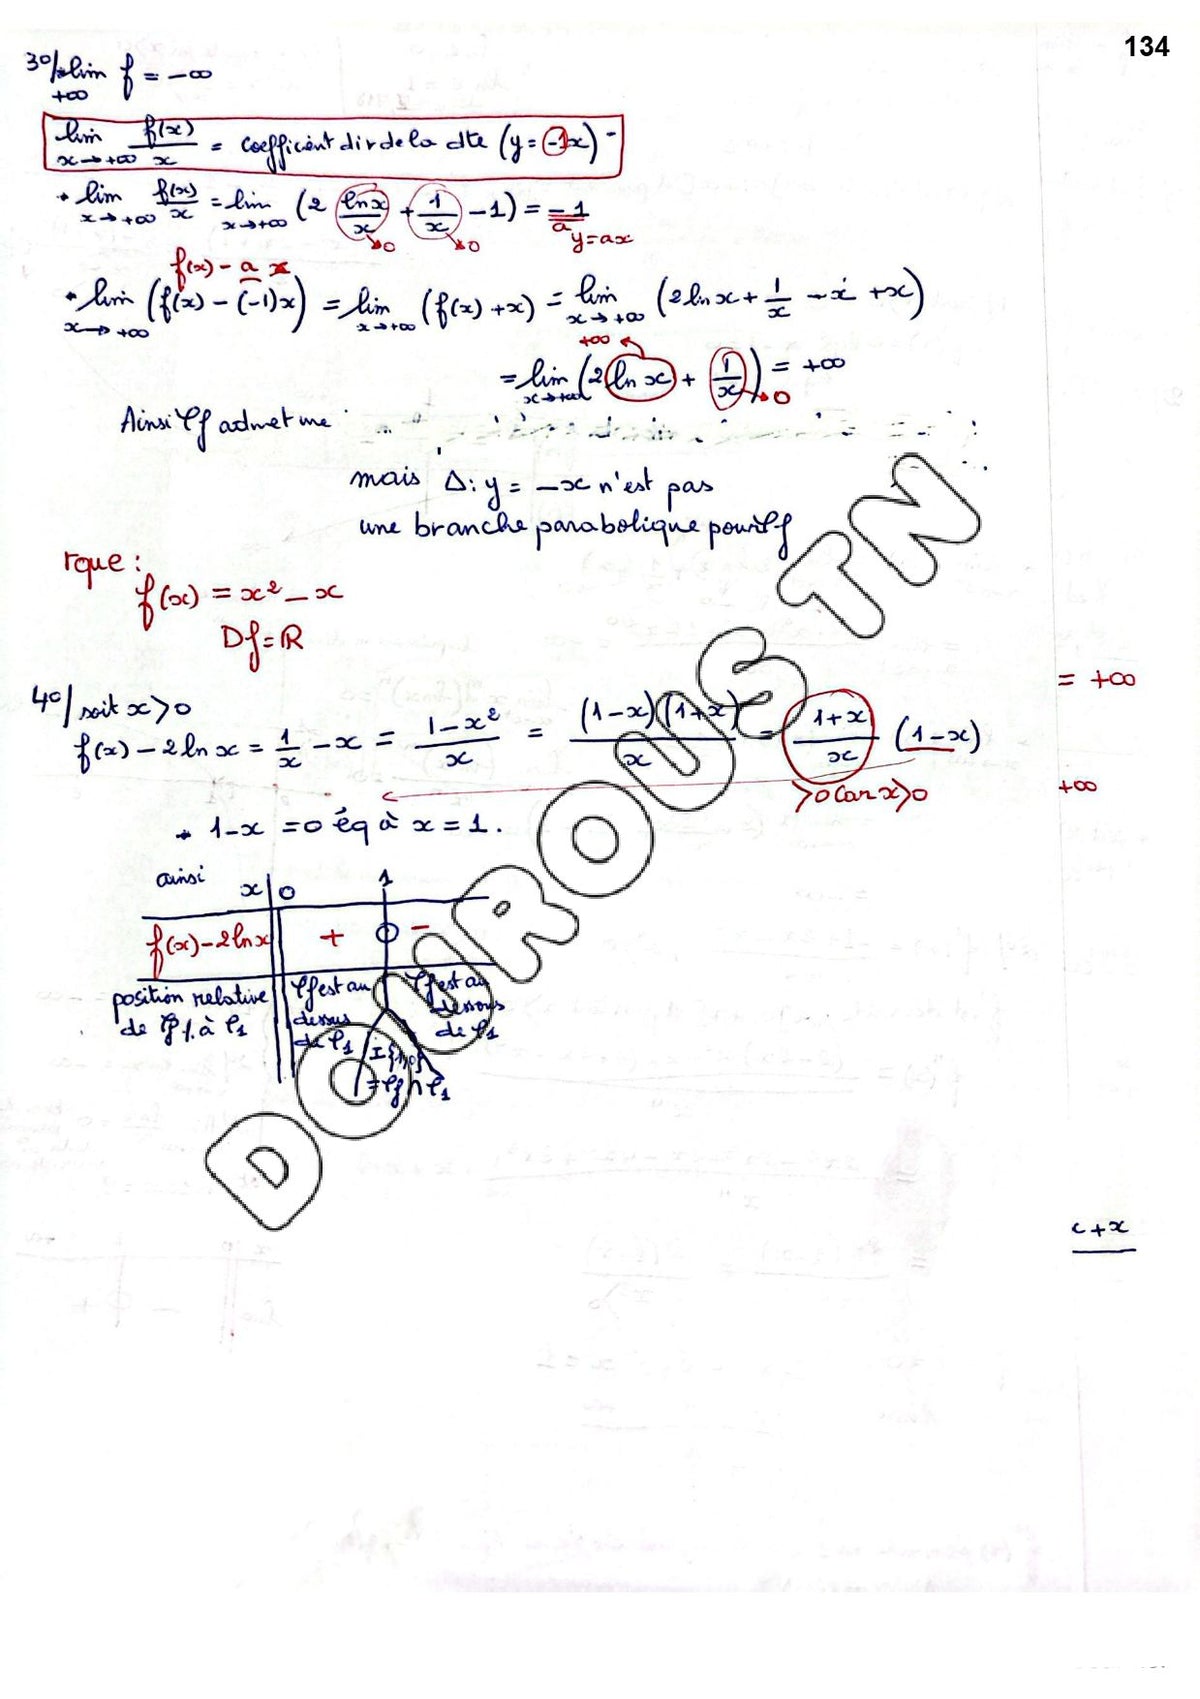 134
3°/ * lim f = -∞
+∞
lim f(x)/x = coefficient dir de la dte (y = -1x)
x→+∞
• lim f(x)/x = lim (2 lnx/x + 1/x - 1) = -1
x→+∞ x→+∞ →0 →0 a y=ax
f(x) - a x
• lim (f(x) - (-1)x) = lim (f(x) + x) = lim (2 ln x + 1/x - x + x)
x→+∞ x→+∞ x→+∞
+∞
= lim (2 ln x + 1/x) = +∞
x→+∞ →0
Ainsi ζf admet une
mais Δ: y = -x n'est pas
une branche parabolique pour ζf
rque :
f(x) = x² - x
Df = ℝ
= +∞
4°/ soit x > 0
f(x) - 2 ln x = 1/x - x = (1-x²)/x = (1-x)(1+x)/x = (1+x)/x (1-x)
>0 car x>0
+∞
* 1-x = 0 éq à x = 1.
ainsi
x | 0 1
f(x) - 2 ln x + 0 -
position relative de ζf % à ζ1 | ζf est au dessus de ζ1 | ζf est au dessous de ζ1
I{1,0}
= ζf ∩ ζ1
+x
DOUROUS TN